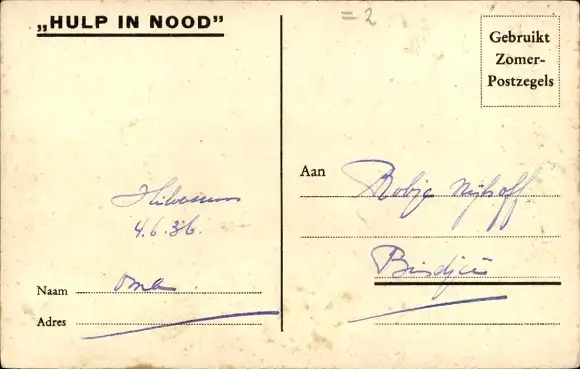 „HULP IN NOOD”
= 2
Gebruikt
Zomer-
Postzegels
Hilversum
4.6.36.
Naam Oma
Adres
Aan Robje Nijhoff